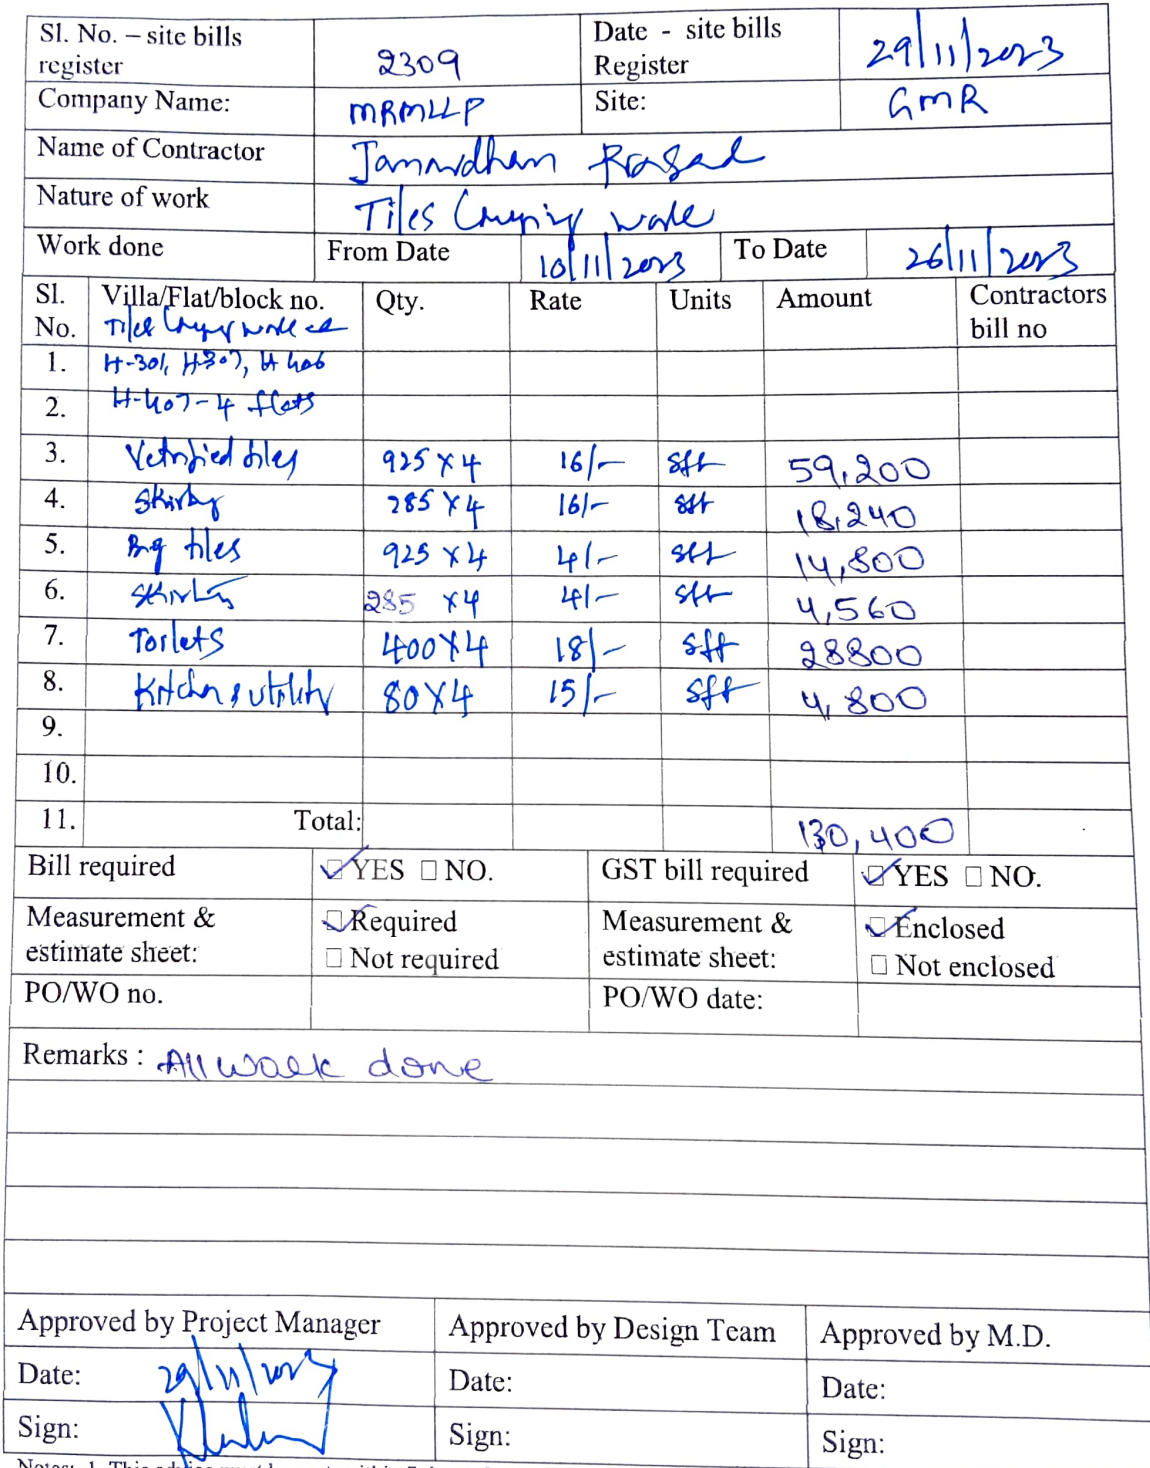 Sl. No. – site bills register 2309 Date - site bills Register 29/11/2023
Company Name: MRMLLP Site: GMR
Name of Contractor Janardhan Prasad
Nature of work Tiles Laying work
Work done From Date 10/11/2023 To Date 26/11/2023
Sl. No. Villa/Flat/block no. Qty. Rate Units Amount Contractors bill no
Tiles Laying work
1. H-301, H-307, H 406
2. H-407-4 flats
3. Vetrified tiles 925 x 4 16/- sft 59,200
4. 285 x 4 16/- sft 18,240
5. Big tiles 925 x 4 4/- sft 14,800
6. 285 x4 4/- sft 4,560
7. Toilets 400x4 18/- sft 28800
8. Kitchen & utility 80x4 15/- sft 4,800
9.
10.
11. Total: 130,400
Bill required ☑YES □NO. GST bill required ☑YES □ NO.
Measurement & estimate sheet: ☑Required □ Not required Measurement & estimate sheet: ☑Enclosed □ Not enclosed
PO/WO no. PO/WO date:
Remarks : All work done
Approved by Project Manager Approved by Design Team Approved by M.D.
Date: 29/11/2023 Date: Date:
Sign: Sign: Sign: